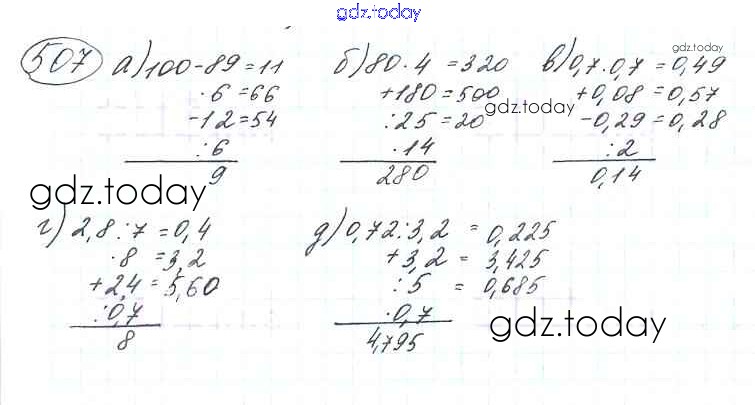 gdz.today
507 а) 100-89=11 б) 80·4 =320 в) 0,7·0,7=0,49
gdz.today
·6=66 +180=500 +0,08=0,57
gdz.today
-12=54 :25=20 -0,29=0,28
:6 ·14 :2
9 280 0,14
gdz.today
г) 2,8:7=0,4 д) 0,72:3,2 = 0,225
·8 =3,2 +3,2 = 3,425
+2,4=5,60 :5 = 0,685
:0,7 ·0,7
gdz.today
8 4,795